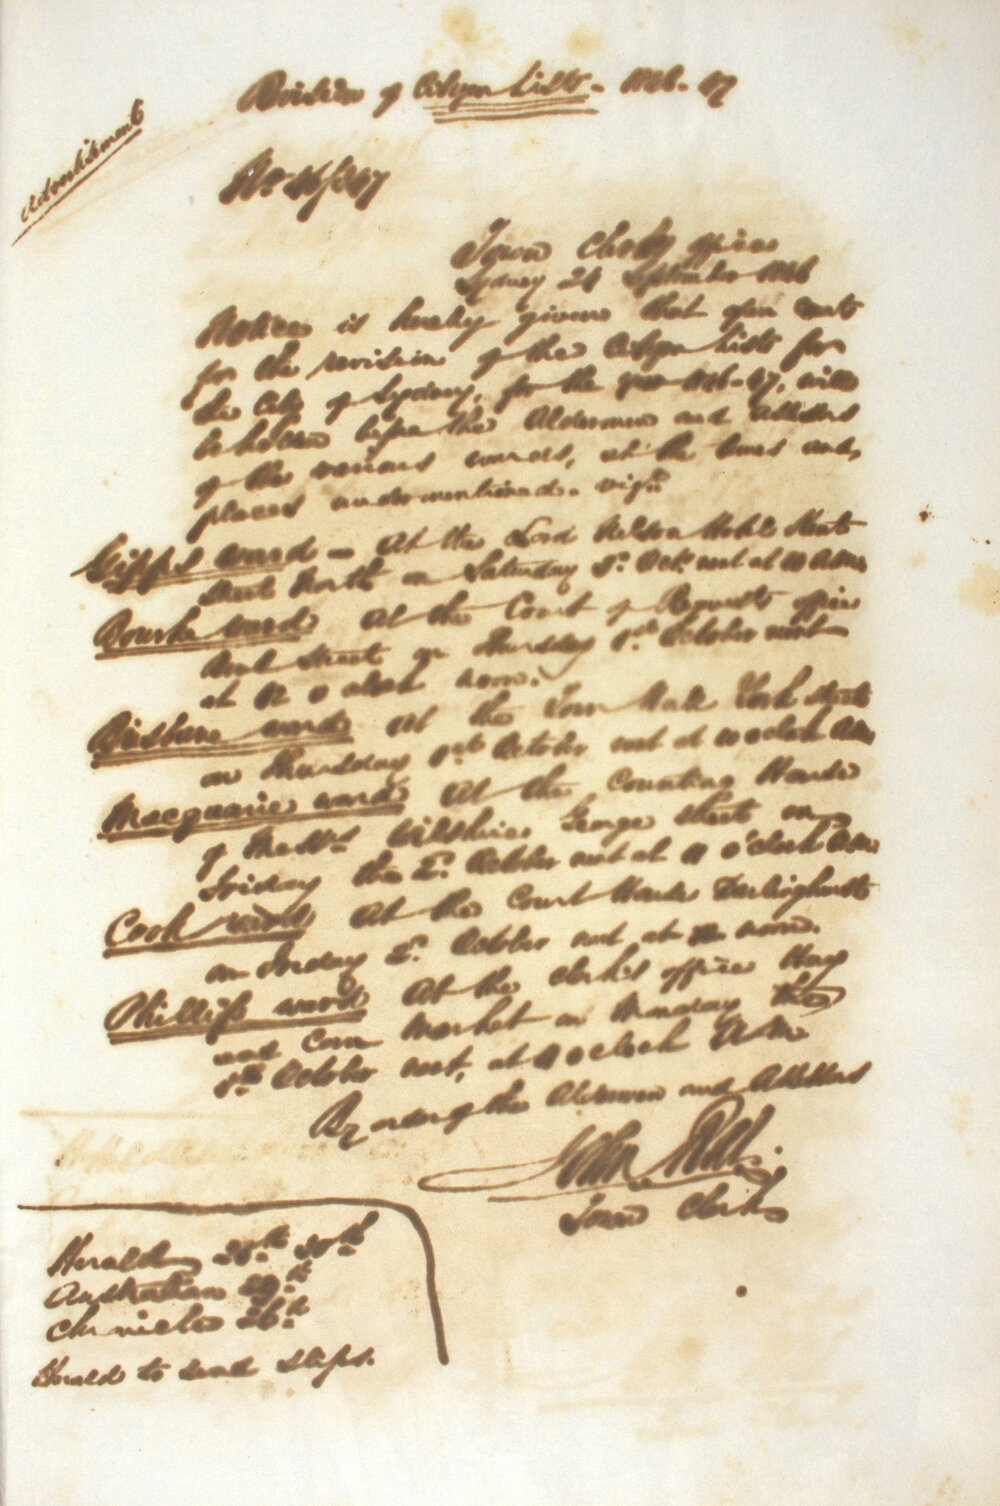 Advertisement
Revision of Citizen Lists - 1846-47
No.
Town Clerks office
Sydney 24 September 1846
Notice is hereby given that open Courts
for the revision of the Citizen Lists for
the City of Sydney, for the year 1846-47, will
be holden before the Aldermen and Assessors
of the various wards, at the times and
places undermentioned. vizt
Gipps ward - At the Lord Nelson Hotel Kent
Street North on Saturday Octr next at 10 A.M.
Bourke ward At the Court of Requests office
Street on Thursday 1st October next
at 12 o'clock noon.
Brisbane ward At the Town Hall York Street
on Thursday 1st October next at 10 o'clock A.M.
Macquarie ward At the Counting House
of Messrs Wilshire George Street on
Friday the 2d October next at 11 o'clock A.M.
Cook ward At the Court House Darlinghurst
on Friday 2d October next at 12 noon.
Phillip ward At the Clerk's office Hay
and Corn Market on Monday the
5th October next, at 11 o'clock A.M.
By order of the Aldermen and Assessors
John Rae
Town Clerk
Herald 28th 30th
Australian 29th
Chronicle 26th
Herald to send slips.